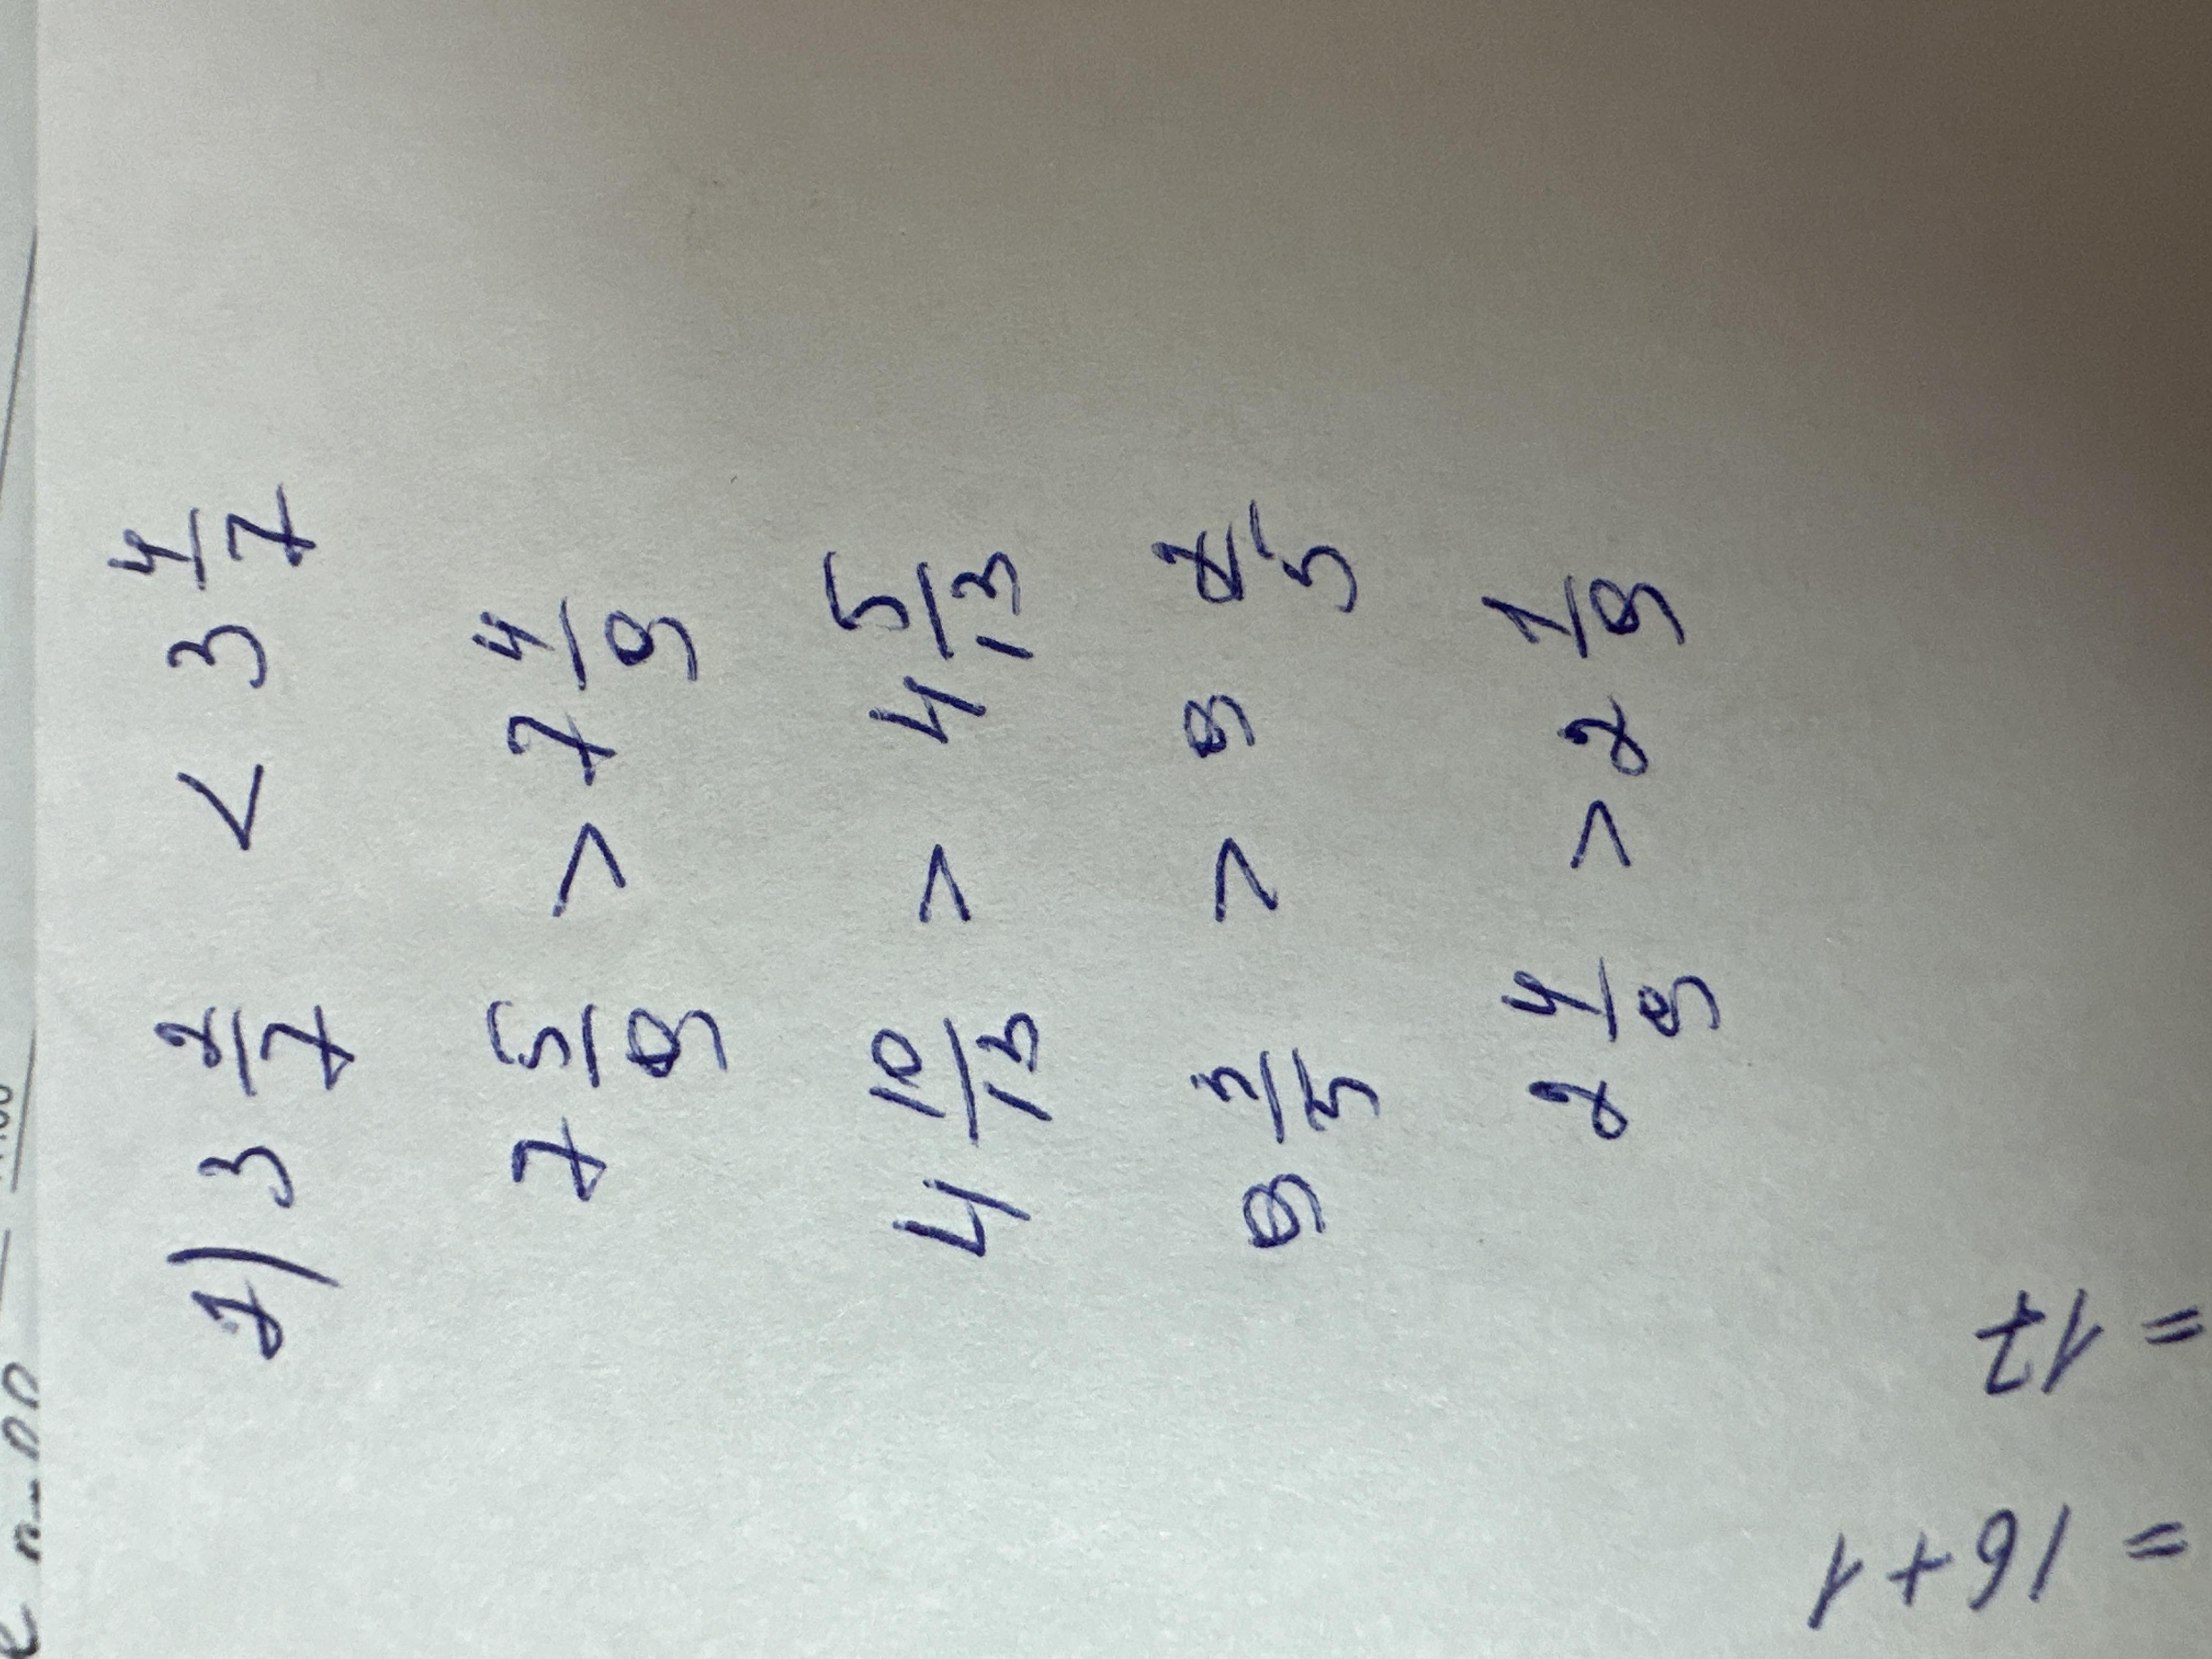 2) 3 2/7 < 3 4/7
7 5/9 > 7 4/9
4 10/13 > 4 5/13
9 3/5 > 9 2/5
2 4/9 > 2 1/9
= 16+1
= 17